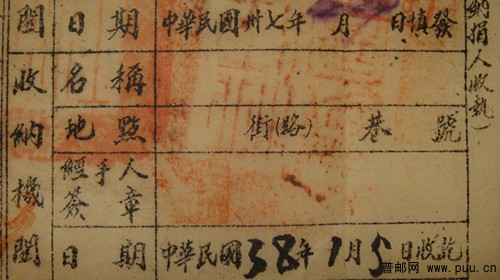 關 日期 中華民國卅七年 月 日填發
收納機關 名稱
地點 街(路) 巷 號
經手人簽章
日期 中華民國38年1月5日收訖
納捐人收執)
普邮网 www.puu.cn